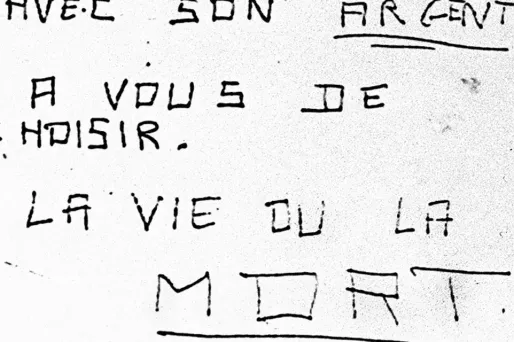 AVEC SON ARGENT
A VOUS DE
HOISIR.
LA VIE OU LA
MORT.